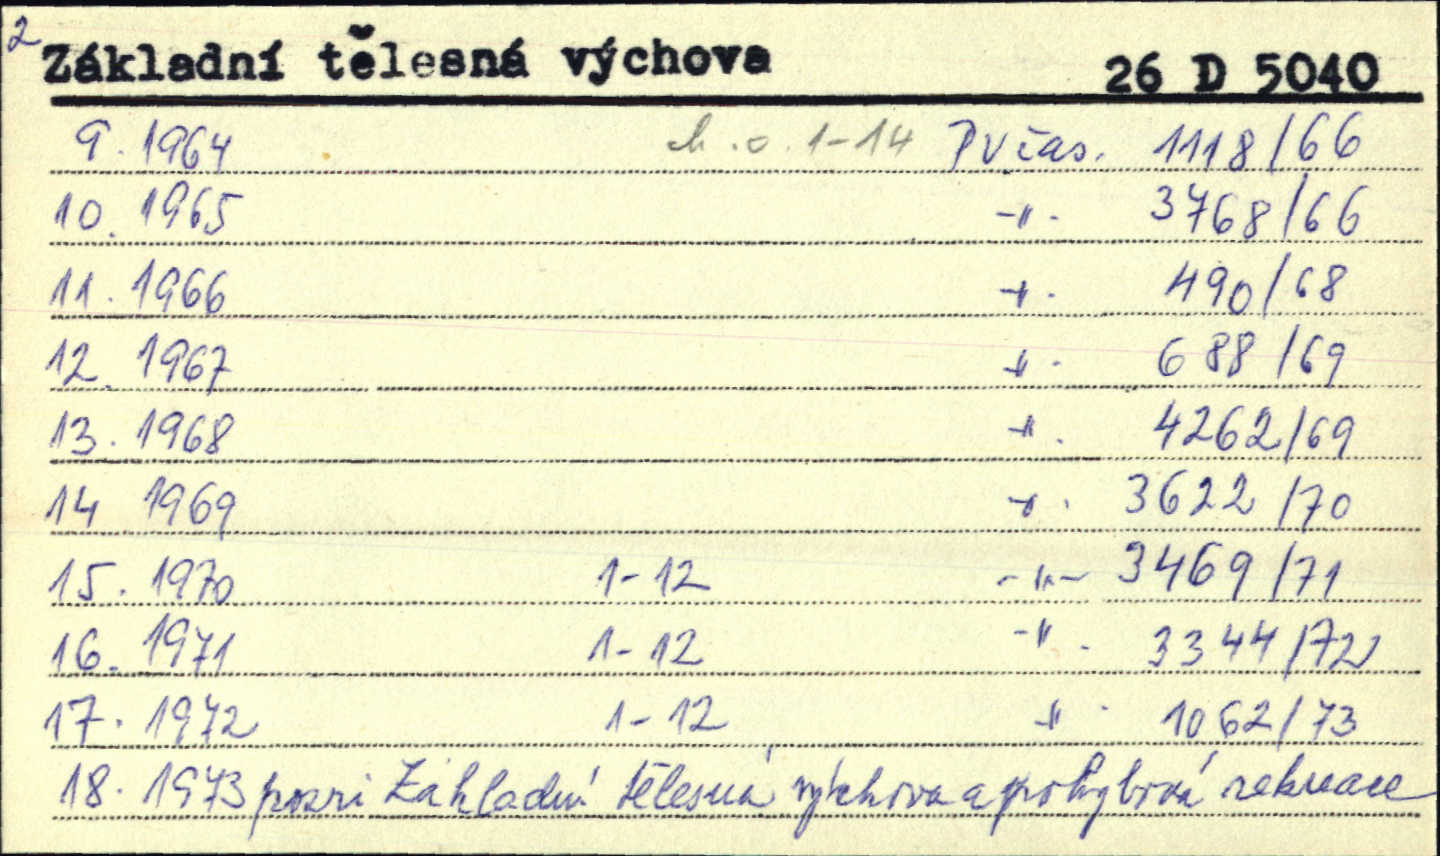 2
Základní tělesná výchova 26 D 5040
9. 1964 1-14 PVčas. 1118/66
10. 1965 -"- 3768/66
11. 1966 -"- 490/68
12. 1967 -"- 688/69
13. 1968 -"- 4262/69
14 1969 -"- 3622/70
15. 1970 1-12 -"- 3469/71
16. 1971 1-12 -"- 3344/72
17. 1972 1-12 -"- 1062/73
18. 1973 pozri Základní tělesná výchova a pohybová rekreace